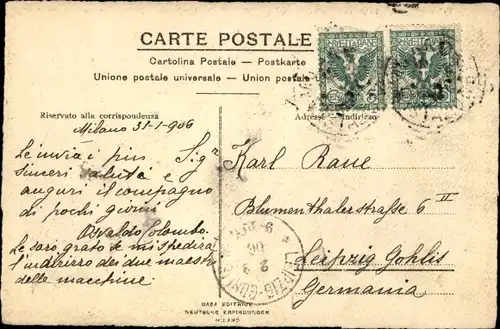 CARTE POSTALE
Cartolina Postale — Postkarte
Unione postale universale — Union postale
Riservato alla corrispondenza
Adresse - Indirizzo
Milano 31-1-906
Le invia i più
sinceri saluti e
auguri il compagno
di pochi giorni
Osvaldo Colombo.
Le sarò grato se mi spedirà
l'indirizzo dei due maestri
delle macchine
Sig.r
Karl Raue
Blumenthalerstraße 6 II
Leipzig Gohlis
Germania
POSTE ITALIANE
5
POSTE ITALIANE
5
LEIPZIG-GOHLIS
CASA EDITRICE
DEUTSCHE ERFINDUNGEN
MILANO